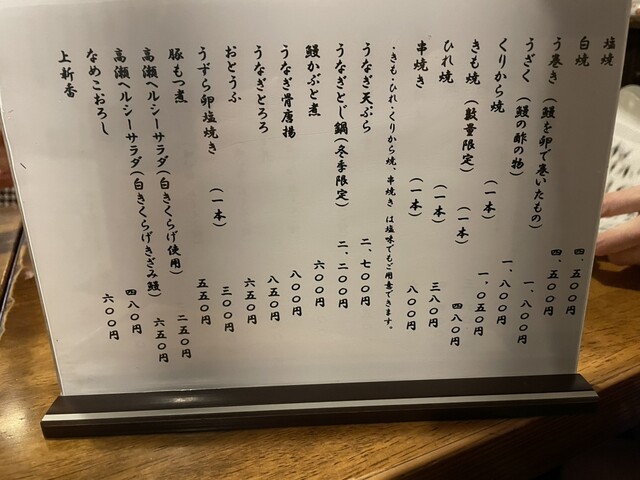 塩焼 四、五〇〇円
白焼 四、五〇〇円
う巻き (鰻を卵で巻いたもの) 一、八〇〇円
うざく (鰻の酢の物) 一、八〇〇円
くりから焼 (一本) 一、〇五〇円
きも焼 (数量限定) (一本) 四八〇円
ひれ焼 (一本) 三八〇円
串焼き (一本) 八〇〇円
・きも・ひれ・くりから焼、串焼き は塩味でもご用意できます。
うなぎ天ぷら 二、七〇〇円
うなぎとじ鍋(冬季限定) 二、二〇〇円
鰻かぶと煮 六〇〇円
うなぎ骨唐揚 八〇〇円
うなぎとろろ 八五〇円
おとうふ 六五〇円
うずら卵塩焼き (一本) 三〇〇円
豚もつ煮 五五〇円
高瀬ヘルシーサラダ(白きくらげ使用) 二五〇円
高瀬ヘルシーサラダ(白きくらげきざみ鰻) 六五〇円
なめこおろし 四八〇円
上新香 六〇〇円